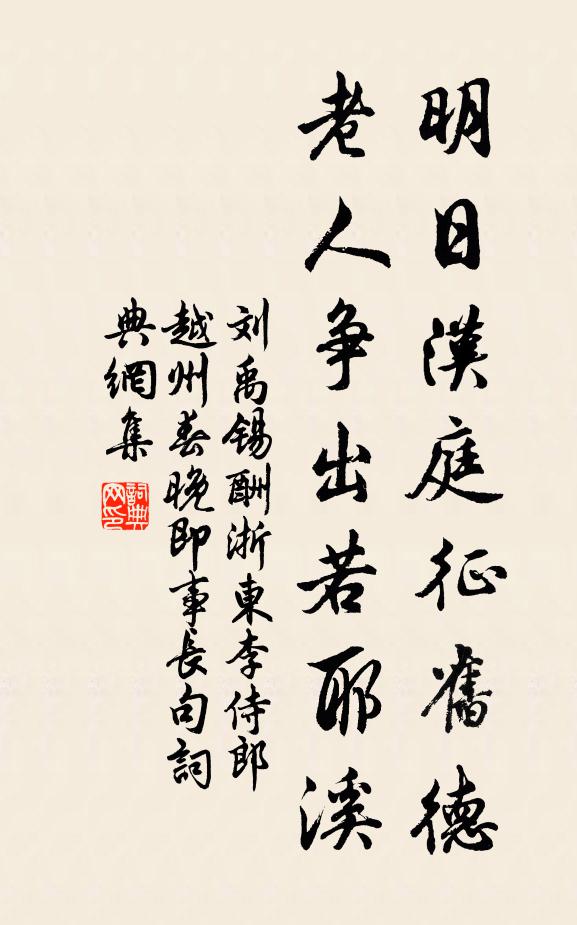 明日漢庭征舊德
老人争出若耶溪
刘禹锡酬浙東李侍郎
越州春晚即事長句詞
典網集
詞典網印